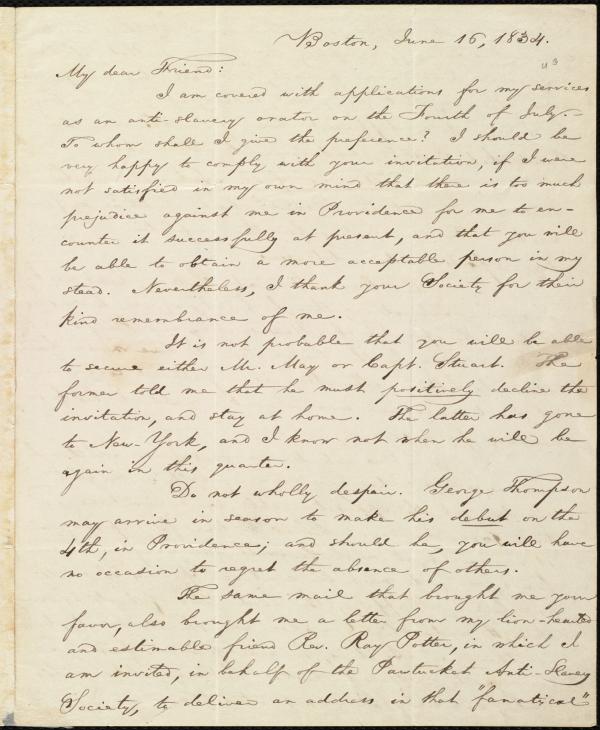 Boston, June 16, 1834.
My dear Friend:
I am covered with applications for my services
as an anti-slavery orator on the Fourth of July.—
To whom shall I give the preference? I should be
very happy to comply with your invitation, if I were
not satisfied in my own mind that there is too much
prejudice against me in Providence for me to en-
counter it successfully at present, and that you will
be able to obtain a more acceptable person in my
stead. Nevertheless, I thank your Society for their
kind remembrance of me.
It is not probable that you will be able
to secure either Mr. May or Capt. Stuart. The
former told me that he must positively decline the
invitation, and stay at home. The latter has gone
to New-York, and I know not when he will be
again in this quarter.
Do not wholly despair. George Thompson
may arrive in season to make his debut on the
4th, in Providence; and should he, you will have
no occasion to regret the absence of others.
The same mail that brought me your
favor, also brought me a letter from my lion-hearted
and estimable friend Rev. Ray Potter, in which I
am invited, in behalf of the Pawtucket Anti-Slavery
Society, to deliver an address in that "fanatical"